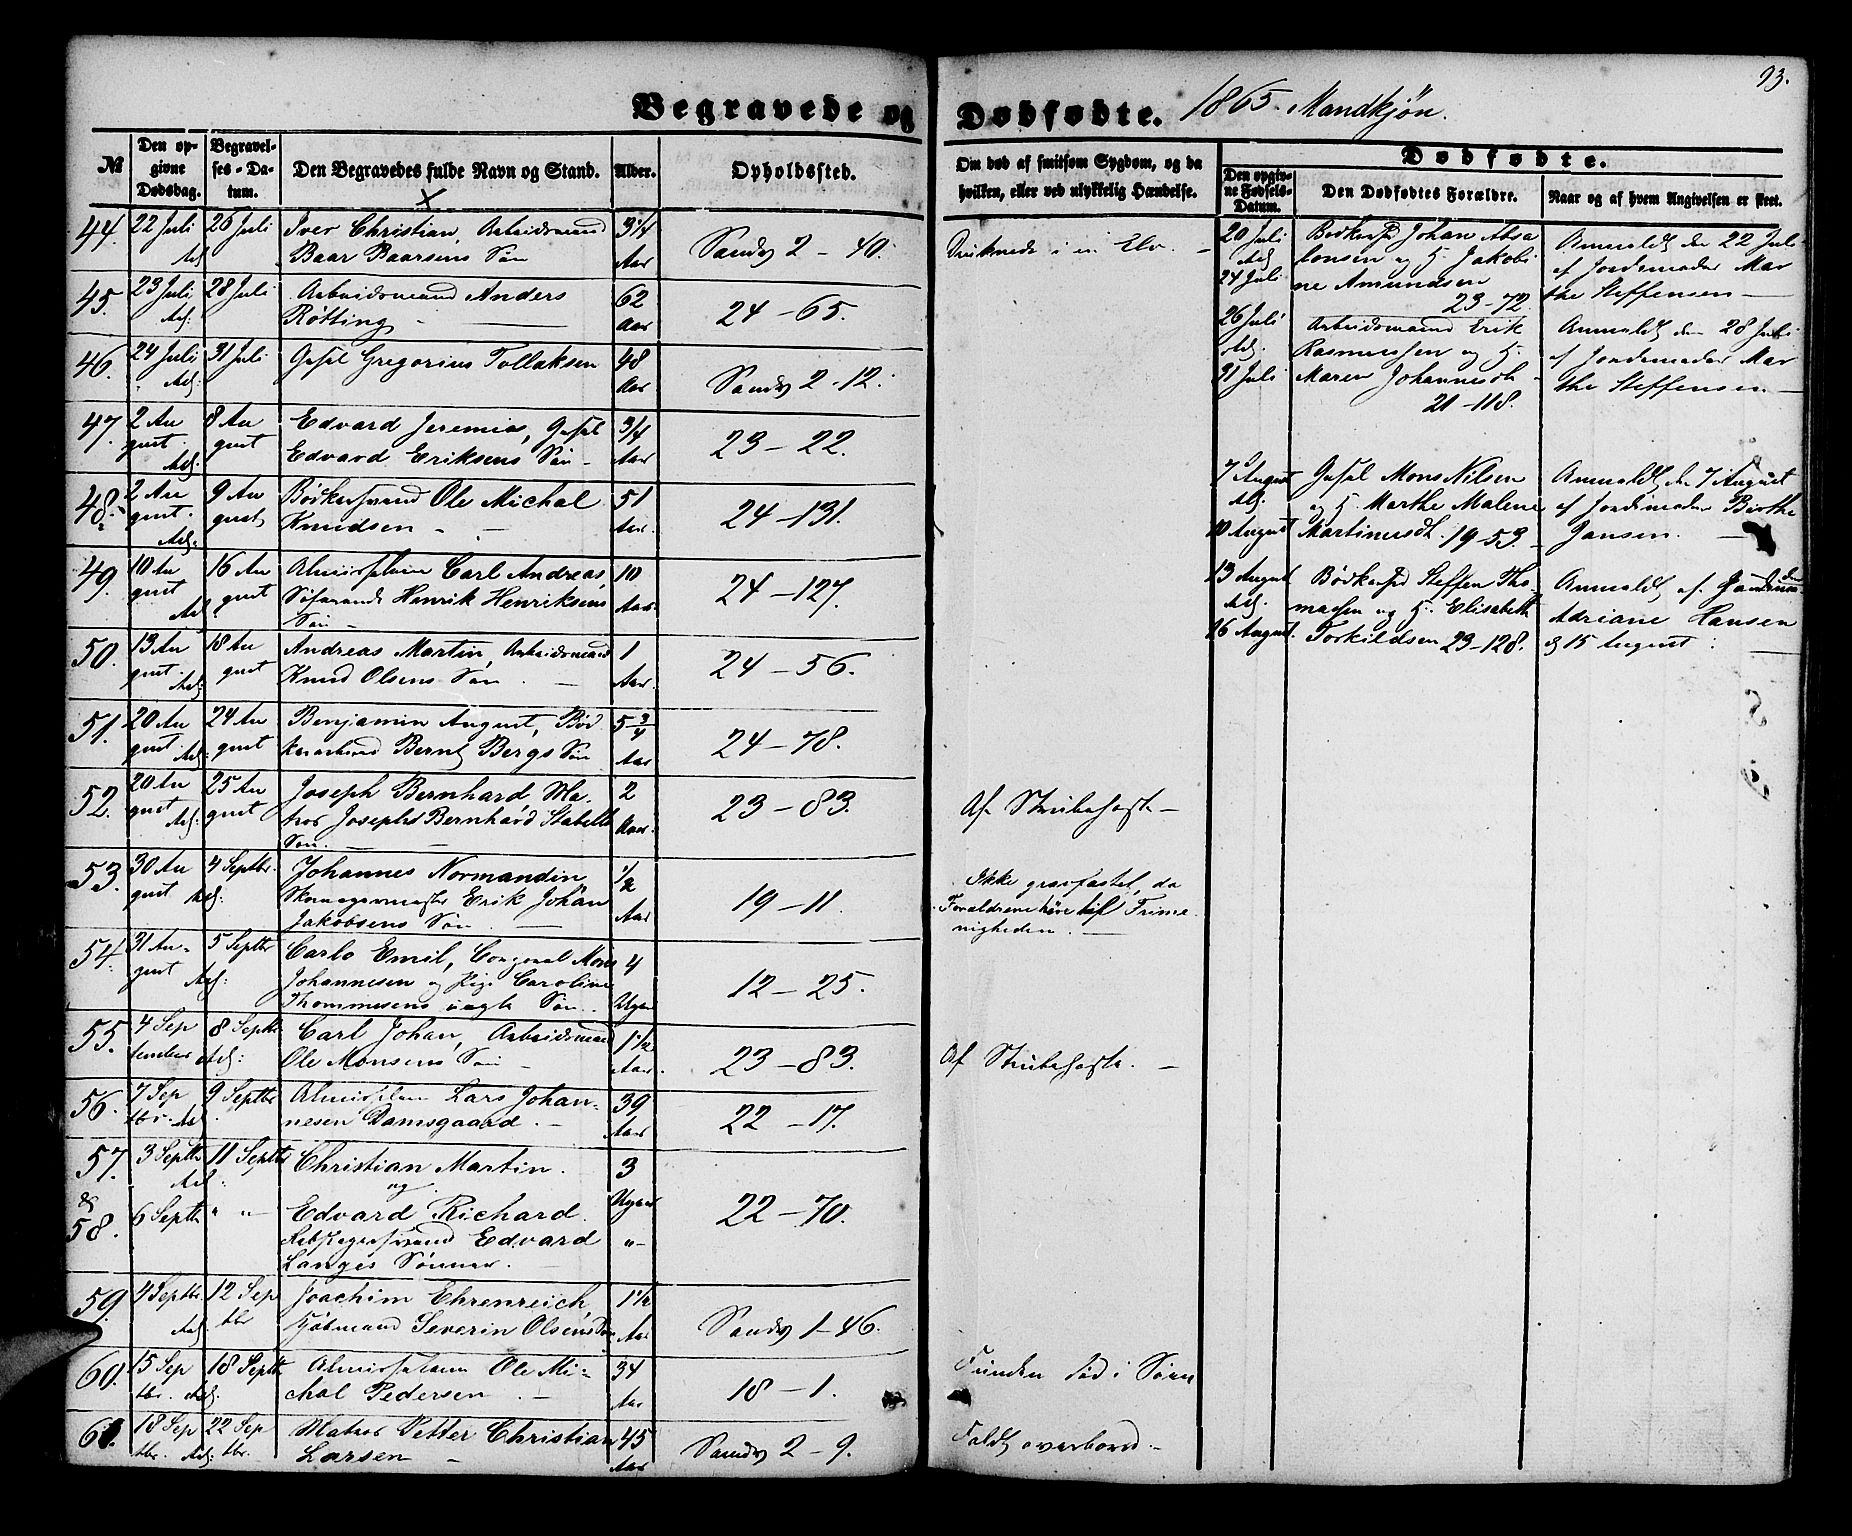 93.
Begravede og Dødfødte. 1865. Mandkjøn.
№
Den opgivne Dødsdag.
Begravelses-Datum.
Den Begravedes fulde Navn og Stand.
Alder.
Opholdssted.
Om død af smitsom Sygdom, og da hvilken, eller ved ulykkelig Hændelse.
Dødfødte.
Den opgivne Fødsels-Datum.
Den Dødfødtes Forældre.
Naar og af hvem Angivelsen er skeet.
44. 22 Juli 26 Juli Iver Christian, Arbeidsmand 3 1/4
Baar Baarsens Søn Aar Sandv 2 – 40. Druknede i en Elv. –
45. 23 Juli 28 Juli Arbeidsmand Anders 62
Røtting – Aar 24 – 65.
46. 24 Juli 31 Juli Gregorius Tollaksen 48
Aar Sandv 2 – 12.
47. 2 Au 8 Au Edvard Jeremias, 3/4
gust gust Edvard Eriksens Søn – Aar 23 – 22.
48. 2 Au 9 Au Bødkersvend Ole Michal 51
gust. gust Knudsen – – Aar. 24 – 131.
49. 10 Au 16 Au Carl Andreas 10
gust gust Henrik Henriksens Aar. 24 – 127.
Søn –
50. 13 Au 18 Au Andreas Martin, Arbeidsmand 1
gust gust Knud Olsens Søn. – Aar. 24 – 56.
51. 20 Au 24 Au Benjamin August, Bød 5 3/4
gust gust Bernt Bergs Søn Aar 24 – 78.
52. 20 Au 25 Au Joseph Bernhard Ma- 2
gust gust tros Josephs Bernhard Stabells Aar. 23 – 83. Af Strubehoste –
Søn. –
53. 30 Au 4 Septbr. Johannes Normandin 1/2
gust Skomagermester Erik Johan 19 – 11. Ikke gravfæstet, da
Jakobsens Søn – Aar Forældrene høre til Frime
nigheden. –
54. 31 Au- 5 Septbr Carlo Emil, Mons 4
gust Johannesen og Pige Caroline 12 – 25.
Thommesens uægte Søn. Uger
55. 4 Sep 8 Septbr Carl Johan, Arbeidsmand 1 1/2
tember Ole Monsens Søn – Aar. 23 – 83. Af Strubehoste. –
56. 7 Sep 9 Septbr Lars Johan- 39
tbr. nesen Damsgaard. – Aar 22 – 17.
57. 3 Septbr 11 Septbr Christian Martin. 3
& og Uger
58. 6 Septbr " "– Edvard Richard. 22 – 70.
Edvard "–
Langes Sønner. –
59. 4 Septbr. 12 Sep Joachim Ehrenreich, 1 1/2
tbr Kjøbmand Severin Olsens Søn Aar Sandv 1 – 46.
60. 15 Sep 18 Septbr Ole Mi- 34
tbr. chal Pedersen – Aar 18 – 1. Funden død i Søen
61. 18 Sep 22 Sep Matros Petter Christian 45
tbr. tbr. Larsen – Aar Sandv 2 – 9. Faldt overbord. –
20 Juli Johan Absa Anmeldt den 22 Jul
lonsen og H. Jakobi af Jordemoder Mar
24 Juli ne Amundsen the Steffensen –
23 – 72.
26 Juli Arbeidsmand Erik Anmeldt den 28 Juli
Rasmussen og H. af Jordemoder Mar
31 Juli Maren Johannesdt. – the Steffensen –
21 – 118.
7 August Mons Nilsen Anmeldt den 7 August
og H. Marthe Malene af Jordemoder Birthe
10 August Martinusdt. 19 – 53. Jansen. –
13 August Bødkersvd Steffen Tho- Anmeldt af
masen og H. Elisabeth Adriane Hansen
16 August. Torkildsen 23 – 128. d 15 August. –